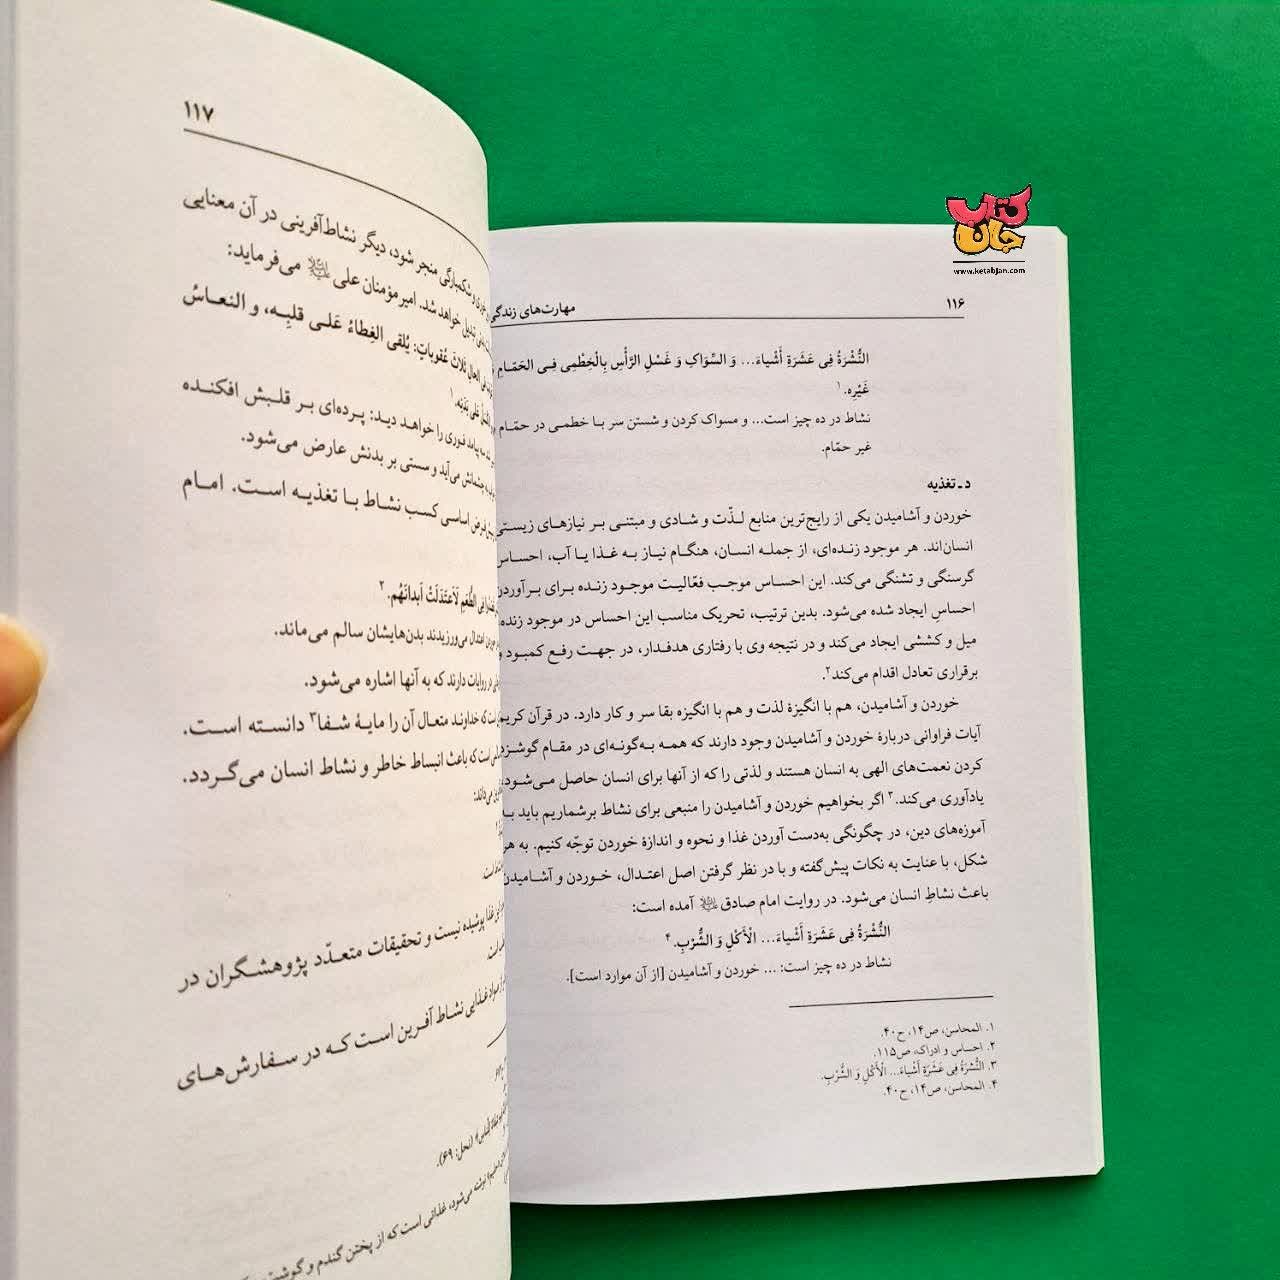 کتاب جان
www.ketabjan.com
۱۱۶
مهارت‌های زندگی
النُّشْرَةُ فِی عَشَرَةِ أَشْیاءَ... وَ السِّوَاکِ وَ غَسْلِ الرَّأْسِ بِالْخِطْمِی فِی الحَمّامِ
غَیْرِه.۱
نشاط در ده چیز است... و مسواک کردن و شستن سر با خطمی در حمّام
غیر حمّام.
د ـ تغذیه
خوردن و آشامیدن یکی از رایج‌ترین منابع لذّت و شادی و مبتنی بر نیازهای زیستی
انسان‌اند. هر موجود زنده‌ای، از جمله انسان، هنگام نیاز به غذا یا آب، احساس
گرسنگی و تشنگی می‌کند. این احساس موجب فعّالیت موجود زنده برای برآوردن
احساسِ ایجاد شده می‌شود. بدین ترتیب، تحریک مناسب این احساس در موجود زنده،
میل و کششی ایجاد می‌کند و در نتیجه وی با رفتاری هدفدار، در جهت رفع کمبود و
برقراری تعادل اقدام می‌کند۲.
خوردن و آشامیدن، هم با انگیزهٔ لذت و هم با انگیزه بقا سر و کار دارد. در قرآن کریم
آیات فراوانی دربارهٔ خوردن و آشامیدن وجود دارند که همه به‌گونه‌ای در مقام گوشزد
کردن نعمت‌های الهی به انسان هستند و لذتی را که از آنها برای انسان حاصل می‌شود،
یادآوری می‌کند.۳ اگر بخواهیم خوردن و آشامیدن را منبعی برای نشاط برشماریم باید با
آموزه‌های دین، در چگونگی به‌دست آوردن غذا و نحوه و اندازهٔ خوردن توجّه کنیم. به هر
شکل، با عنایت به نکات پیش‌گفته و با در نظر گرفتن اصل اعتدال، خوردن و آشامیدن
باعث نشاطِ انسان می‌شود. در روایت امام صادق علیه‌السلام آمده است:
النُّشْرَةُ فِی عَشَرَةِ أَشْیاءَ... الْأَکْلِ وَ الشُّرْبِ.۴
نشاط در ده چیز است: ... خوردن و آشامیدن [از آن موارد است].
۱. المحاسن، ص۱۴، ح۴۰.
۲. احساس و ادراک، ص۱۱۵.
۳. النُّشْرَةُ فِی عَشَرَةِ أَشْیاءَ... الْأَکْلِ وَ الشُّرْبِ.
۴. المحاسن، ص۱۴، ح۴۰.
۱۱۷
و شکمبارگی منجر شود، دیگر نشاط‌آفرینی در آن معنایی
تبدیل خواهد شد. امیرمؤمنان علی علیه‌السلام می‌فرماید:
ثَلاثَ عُقوباتٍ: یُلقی الغِطاءُ عَلی قلبِه، و النعاسُ
عَلی بَدَنِه.۱
پیامد فوری را خواهد دید: پرده‌ای بر قلبش افکنده
چشمانش می‌آید و سستی بر بدنش عارض می‌شود.
اساسی کسب نشاط با تغذیه است. امام
الطُّعْمِ لَاعتَدَلَتْ اَبدانُهُم.۲
اعتدال می‌ورزیدند بدن‌هایشان سالم می‌ماند.
در روایات دارند که به آنها اشاره می‌شود.
است که خداوند متعال آن را مایهٔ شفا۳ دانسته است.
است که باعث انبساط خاطر و نشاط انسان می‌گردد.
می‌داند:
است.
غذا پوشیده نیست و تحقیقات متعدّد پژوهشگران در
است.
از مواد غذایی نشاط آفرین است که در سفارش‌های
(نحل: ۶۹).
نوشته می‌شود، غذائی است که از پختن گندم و گوشت